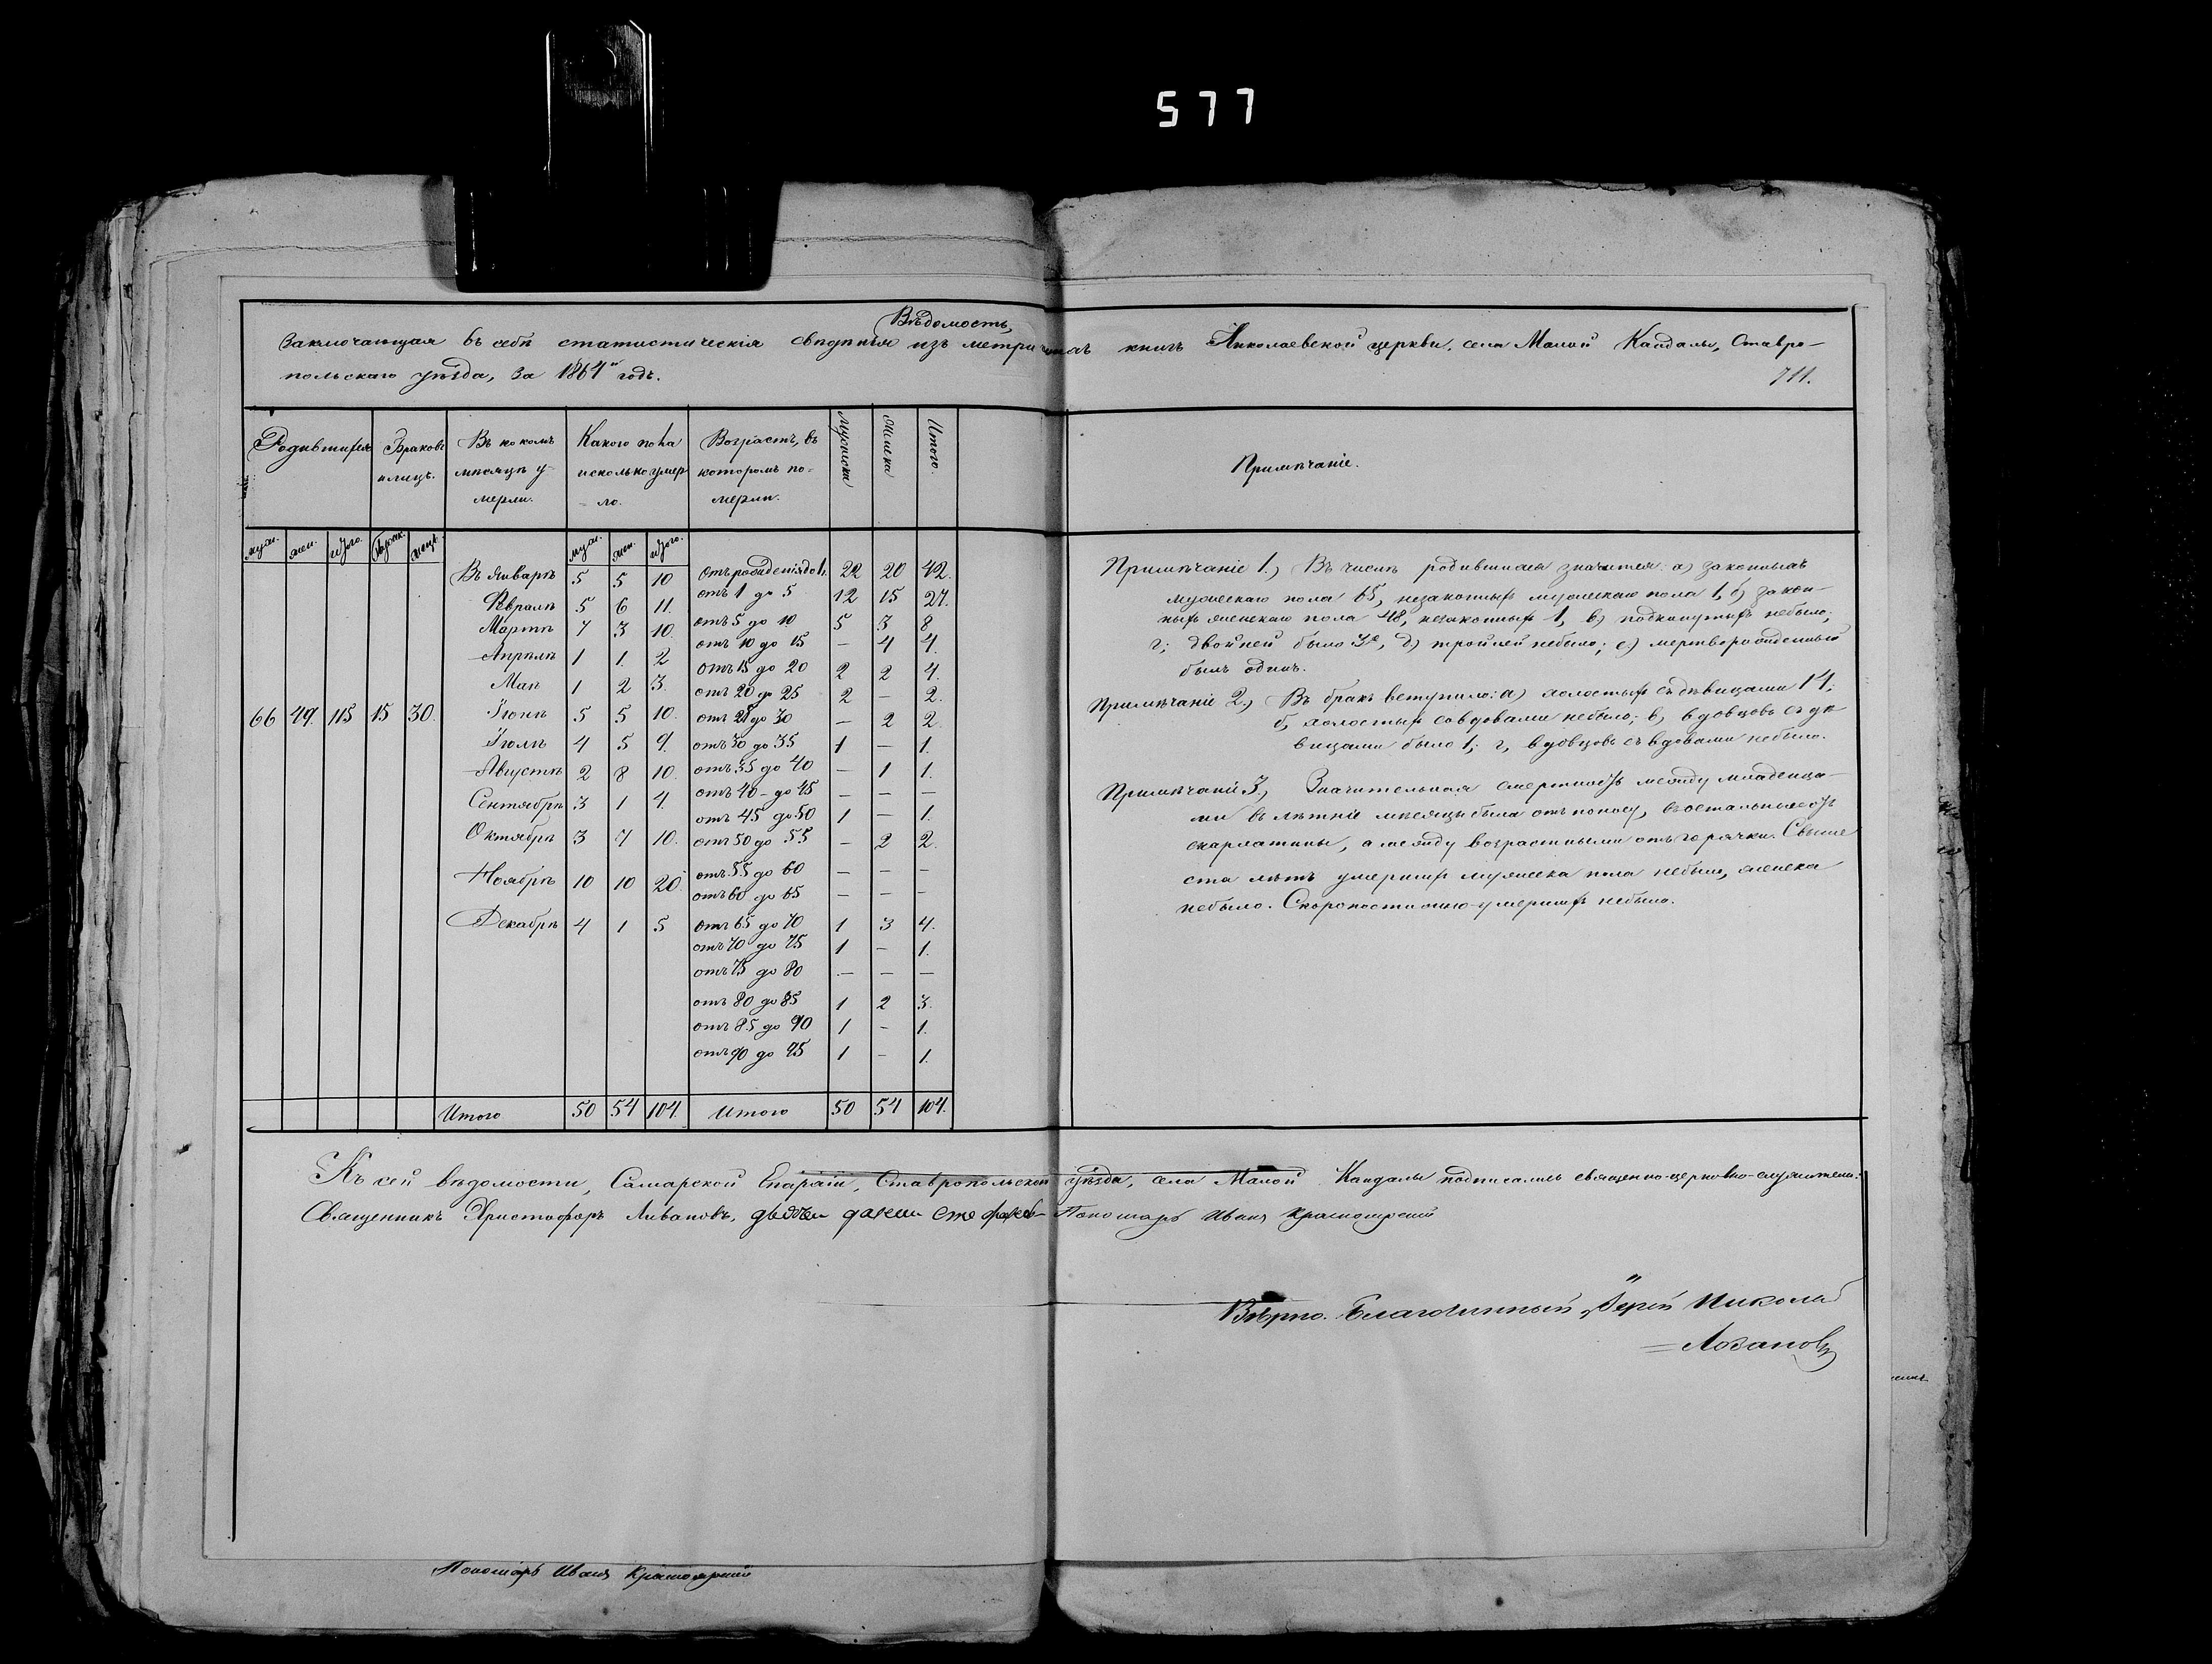 577
Вѣдомость,
Заключающая въ себѣ статистическія свѣдѣнія изъ метрическихъ книгъ Николаевской церкви, села Малой Кандалы, Ставро-
польскаго уѣзда, за 1864й годъ.
711.
Родившихся Браковъ и лицъ. Въ какомъ мѣсяцѣ умерли. Какого пола и сколько умерло. Возрастъ, въ которомъ померли. Мужеска Женска Итого. Примѣчаніе.
муж. жен. итого. брак. лицъ. муж. жен. итого.
66 49. 115 15 30.
Въ Январѣ 5 5 10
Февралѣ 5 6 11.
Мартѣ 7 3 10.
Апрѣлѣ 1 1. 2
Маѣ 1 2 3.
Іюнѣ 5 5 10.
Іюлѣ 4 5 9.
Августѣ 2 8 10.
Сентябрѣ 3 1 4.
Октябрѣ 3 7 10.
Ноябрѣ 10 10 20.
Декабрѣ 4 1 5
Итого 50 54 104.
Отъ рожденія до 1. 22 20 42.
отъ 1 до 5 12 15 27.
отъ 5 до 10 5 3 8
отъ 10 до 15 — 4 4.
отъ 15 до 20 2 2 4.
отъ 20 до 25 2 — 2.
отъ 25 до 30 — 2 2.
отъ 30 до 35 1 — 1.
отъ 35 до 40 — 1 1.
отъ 40 до 45 — — —
отъ 45 до 50 1 — 1.
отъ 50 до 55 — 2 2.
отъ 55 до 60 — — —
отъ 60 до 65 — — —
отъ 65 до 70 1 3 4.
отъ 70 до 75 1 — 1.
отъ 75 до 80 — — —
отъ 80 до 85 1 2 3.
отъ 85 до 90 1 — 1.
отъ 90 до 95 1 — 1.
Итого 50 54 104.
Примѣчаніе 1.) Въ числѣ родившихся значится: а) законныхъ
мужескаго пола 65, незаконныхъ мужескаго пола 1, б) закон-
ныхъ женскаго пола 48, незаконныхъ 1, в) подкинутыхъ небыло;
г; двойней было 3е, д) тройней небыло; е) мертворожденный
былъ одинъ.
Примѣчаніе 2.) Въ бракъ вступило: а) холостыхъ съ дѣвицами 14;
б, холостыхъ со вдовами небыло; в, вдовцовъ съ дѣ
вицами было 1; г, вдовцовъ съ вдовами небыло.
Примѣчаніе 3.) Значительная смертность между младенца-
ми въ лѣтніе мѣсяцы была отъ поносу, въ остальные отъ
скарлатины, а между возрастными отъ горячки. Свыше
ста лѣтъ умершихъ мужеска пола небыло, женска
небыло. Скоропостижно-умершихъ небыло.
Къ сей вѣдомости, Самарской Епархіи, Ставропольскаго уѣзда, села Малой Кандалы подписались священно-церковно-служители:
Священникъ Христофоръ Ливановъ, Пономарь Иванъ Красноярскій
Вѣрно. Благочинный Іерей Николай
Лованов
Пономарь Иванъ Красноярскій